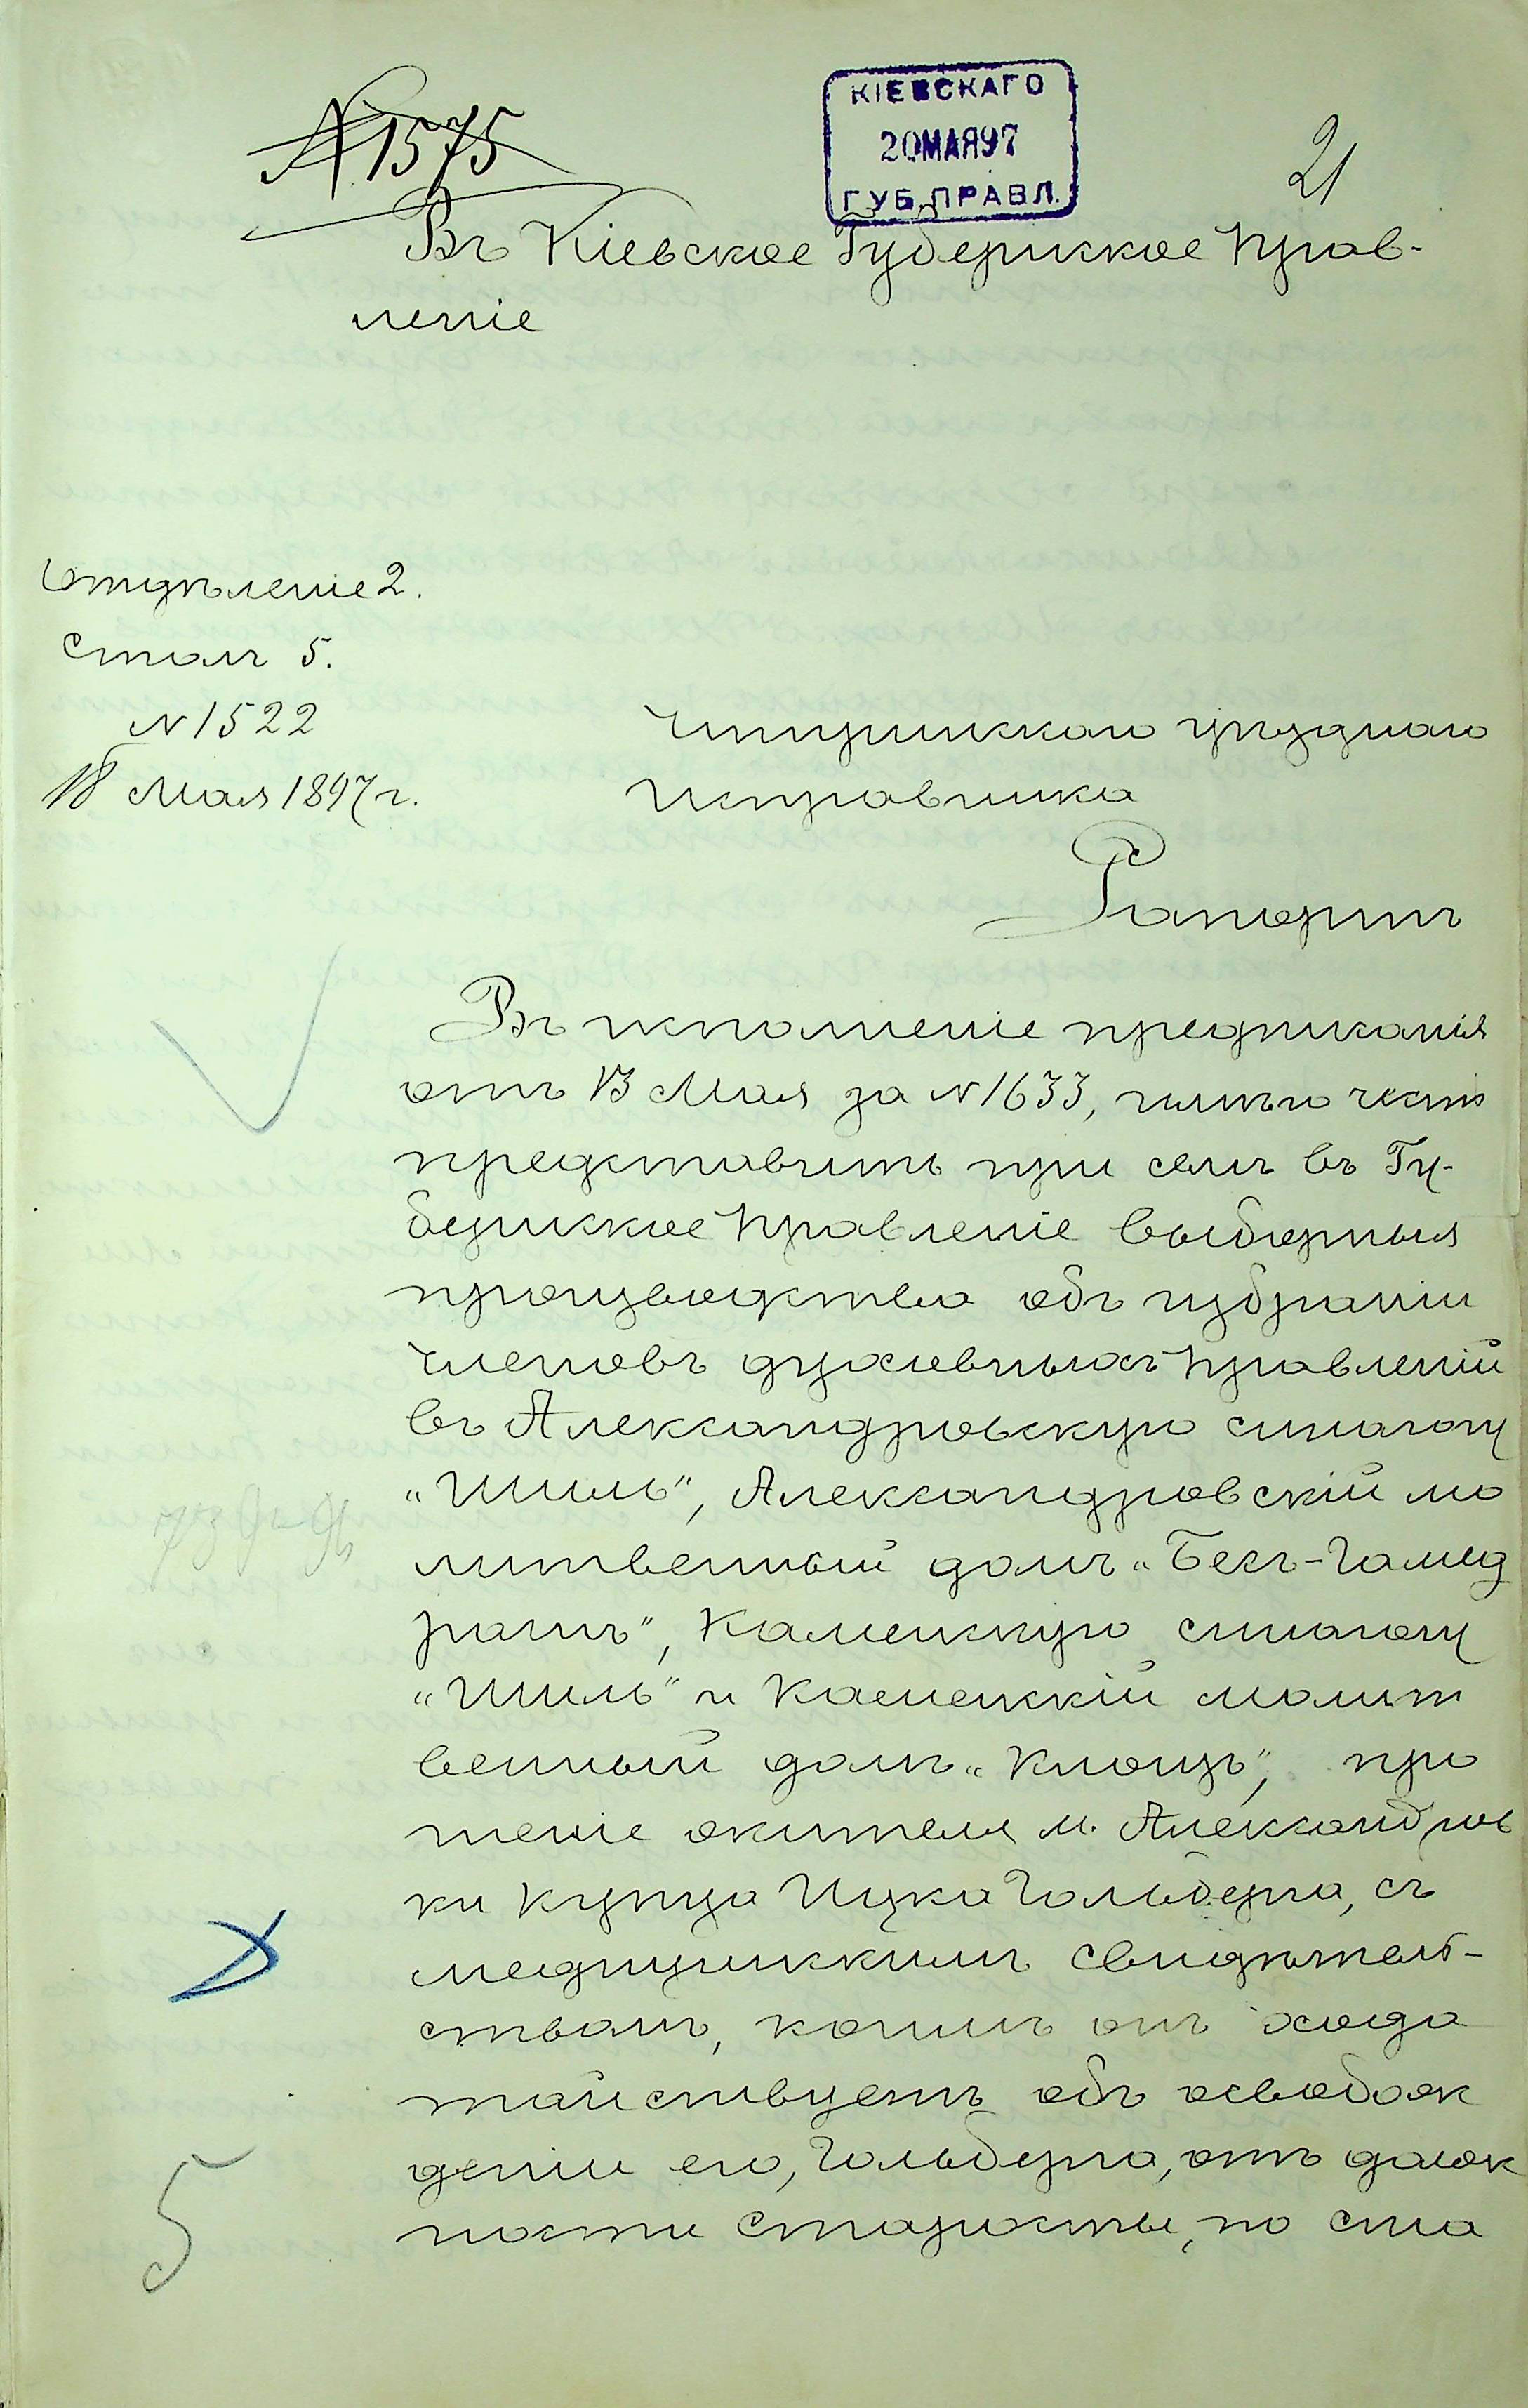 № 1575
КІЕВСКАГО
20 МАЯ 97
ГУБ. ПРАВЛ.
21
Въ Кіевское Губернское Прав-
леніе
Отдѣленіе 2.
Столъ 5.
№ 1522
18 Мая 1897 г.
Чигиринскаго уѣзднаго
Исправника
Рапортъ
Въ исполненіе предписанія
отъ 13 Мая за № 1633, имѣю честь
представить при семъ въ Гу-
бернское Правленіе выборныя
производства объ избраніи
членовъ духовныхъ правленій
въ Александровскую синагогу
„Шиль", Александровскій мо
литвенный домъ „Бесъ-Гамед
рашъ", Каменскую синагогу
„Шиль" и Каменскій молит
венный домъ „Клоузъ", про
шеніе жителя м. Александров
ки купца Ицка Гольберга, съ
медицинскимъ свидѣтель-
ствомъ, коимъ онъ хода
тайствуетъ объ освобож
деніи его, Гольберга, отъ долж
ности старосты, по ста
5